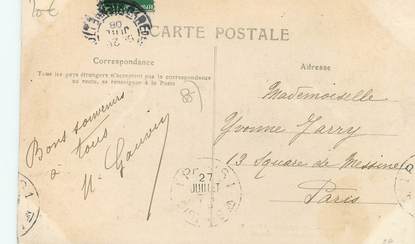 10€
CARTE POSTALE
Correspondance
Tous les pays étrangers n'acceptent pas la correspondance
au recto, se renseigner à la Poste
Adresse
Bons souvenirs
à tous
Mademoiselle
Yvonne Jarry
13 Square de Messine
Paris
27
JUILLET